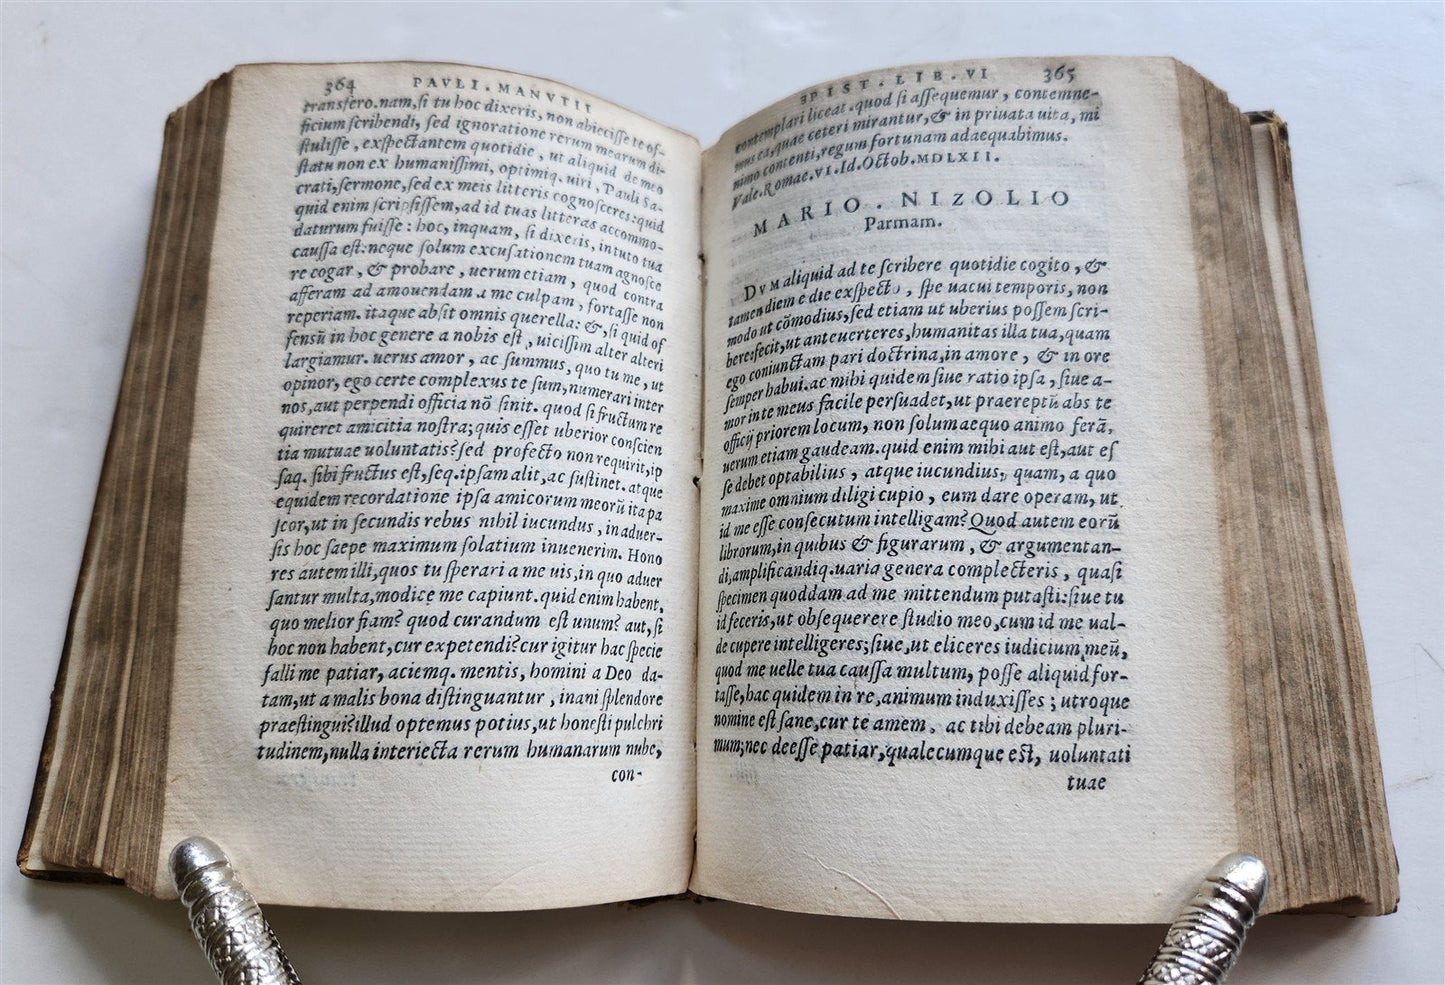 364 PAVLI . MANVTII
transfero. nam, si tu hoc dixeris, non abiecisse te of-
ficium scribendi, sed ignoratione rerum mearum di-
stulisse, exspectantem quotidie, ut aliquid de meo
statu non ex humanissimi, optimiq. uiri, Pauli Sa-
crati, sermone, sed ex meis litteris cognosceres: quid
quid enim scripsissem, ad id tuas litteras accommo-
daturum fuisse: hoc, inquam, si dixeris, in tuto tua
caussa est: neque solum excusationem tuam agnosce
re cogar, & probare, uerum etiam, quod contra
afferam ad amouendam a me culpam, fortasse non
reperiam. itaque absit omnis querella: &, si quid of
fensū in hoc genere a nobis est, uicissim alter alteri
largiamur. uerus amor, ac summus, quo tu me, ut
opinor, ego certe complexus te sum, numerari inter
nos, aut perpendi officia nō sinit. quod si fructum re
quireret amicitia nostra; quis esset uberior conscien
tia mutuae uoluntatis? sed profecto non requirit, ip
saq. sibi fructus est, seq. ipsam alit, ac sustinet. atque
equidem recordatione ipsa amicorum meorū ita pa
scor, ut in secundis rebus nihil iucundus, in aduer-
sis hoc saepe maximum solatium inuenerim. Hono
res autem illi, quos tu sperari a me uis, in quo aduer
santur multa, modice me capiunt. quid enim habent,
quo melior fiam? quod curandum est unum? aut, si
hoc non habent, cur expetendi? cur igitur hac specie
falli me patiar, aciemq. mentis, homini a Deo da-
tam, ut a malis bona distinguantur, inani splendore
praestingui? illud optemus potius, ut honesti pulchri
tudinem, nulla interiecta rerum humanarum nube,
con-
EPIST . LIB . VI 365
contemplari liceat. quod si assequemur, contemne-
mus ea, quae ceteri mirantur, & in priuata uita, mi
nimo contenti, regum fortunam adaequabimus.
Vale. Romae. VI. Id. Octob. MDLXII.
MARIO . NIZOLIO
Parmam.
DVM aliquid ad te scribere quotidie cogito, &
tamen diem e die exspecto, spe uacui temporis, non
modo ut cōmodius, sed etiam ut uberius possem scri-
bere: fecit, ut anteuerteres, humanitas illa tua, quam
ego coniunctam pari doctrina, in amore, & in ore
semper habui. ac mihi quidem siue ratio ipsa, siue a-
mor in te meus facile persuadet, ut praereptū abs te
officij priorem locum, non solum aequo animo ferā,
uerum etiam gaudeam. quid enim mihi aut est, aut es
se debet optabilius, atque iucundius, quam, a quo
maxime omnium diligi cupio, eum dare operam, ut
id me esse consecutum intelligam? Quod autem eorū
librorum, in quibus & figurarum, & argumentan-
di, amplificandiq. uaria genera complecteris, quasi
specimen quoddam ad me mittendum putasti: siue tu
id feceris, ut obsequerere studio meo, cum id me ual-
de cupere intelligeres; siue, ut eliceres iudicium meū,
quod me uelle tua caussa multum, posse aliquid for-
tasse, hac quidem in re, animum induxisses; utroque
nomine est sane, cur te amem, ac tibi debeam pluri-
mum; nec deesse patiar, qualecumque est, uoluntati
tuae